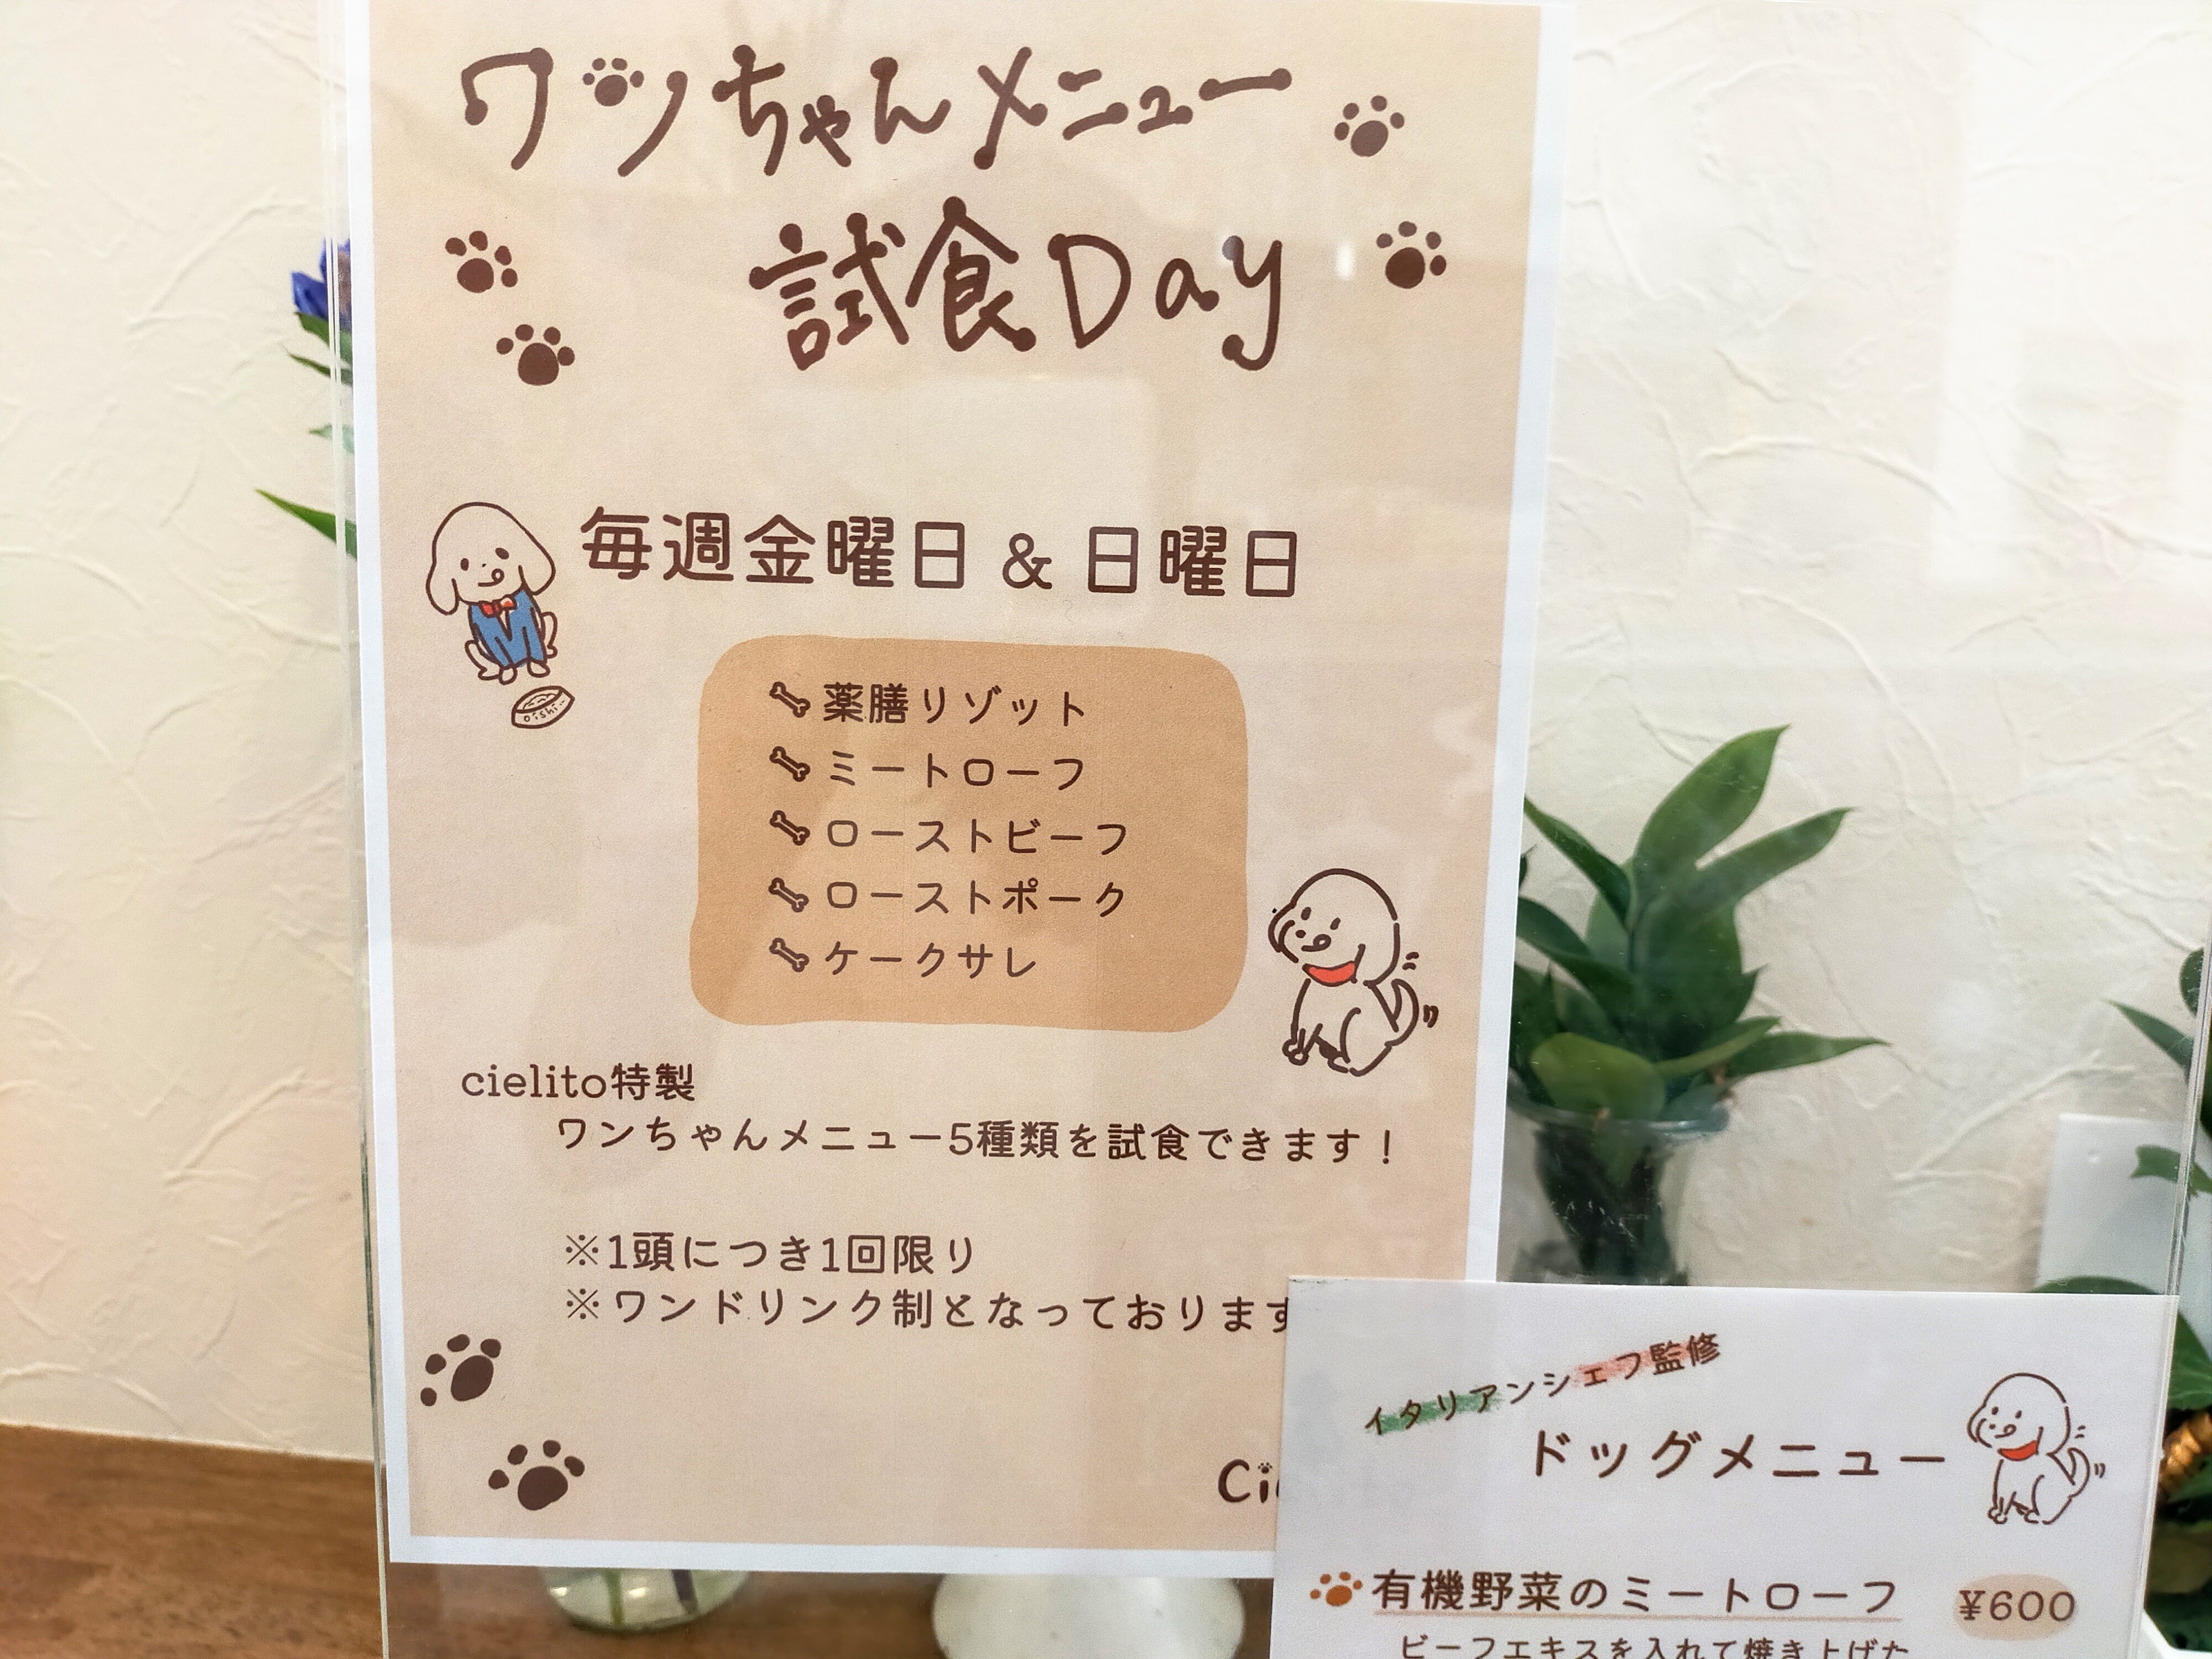 ワンちゃんメニュー
試食Day
毎週金曜日 & 日曜日
oishi
薬膳リゾット
ミートローフ
ローストビーフ
ローストポーク
ケークサレ
cielito特製
ワンちゃんメニュー5種類を試食できます！
※1頭につき1回限り
※ワンドリンク制となっております
Ci
イタリアンシェフ監修
ドッグメニュー
有機野菜のミートローフ ¥600
ビーフエキスを入れて焼き上げた